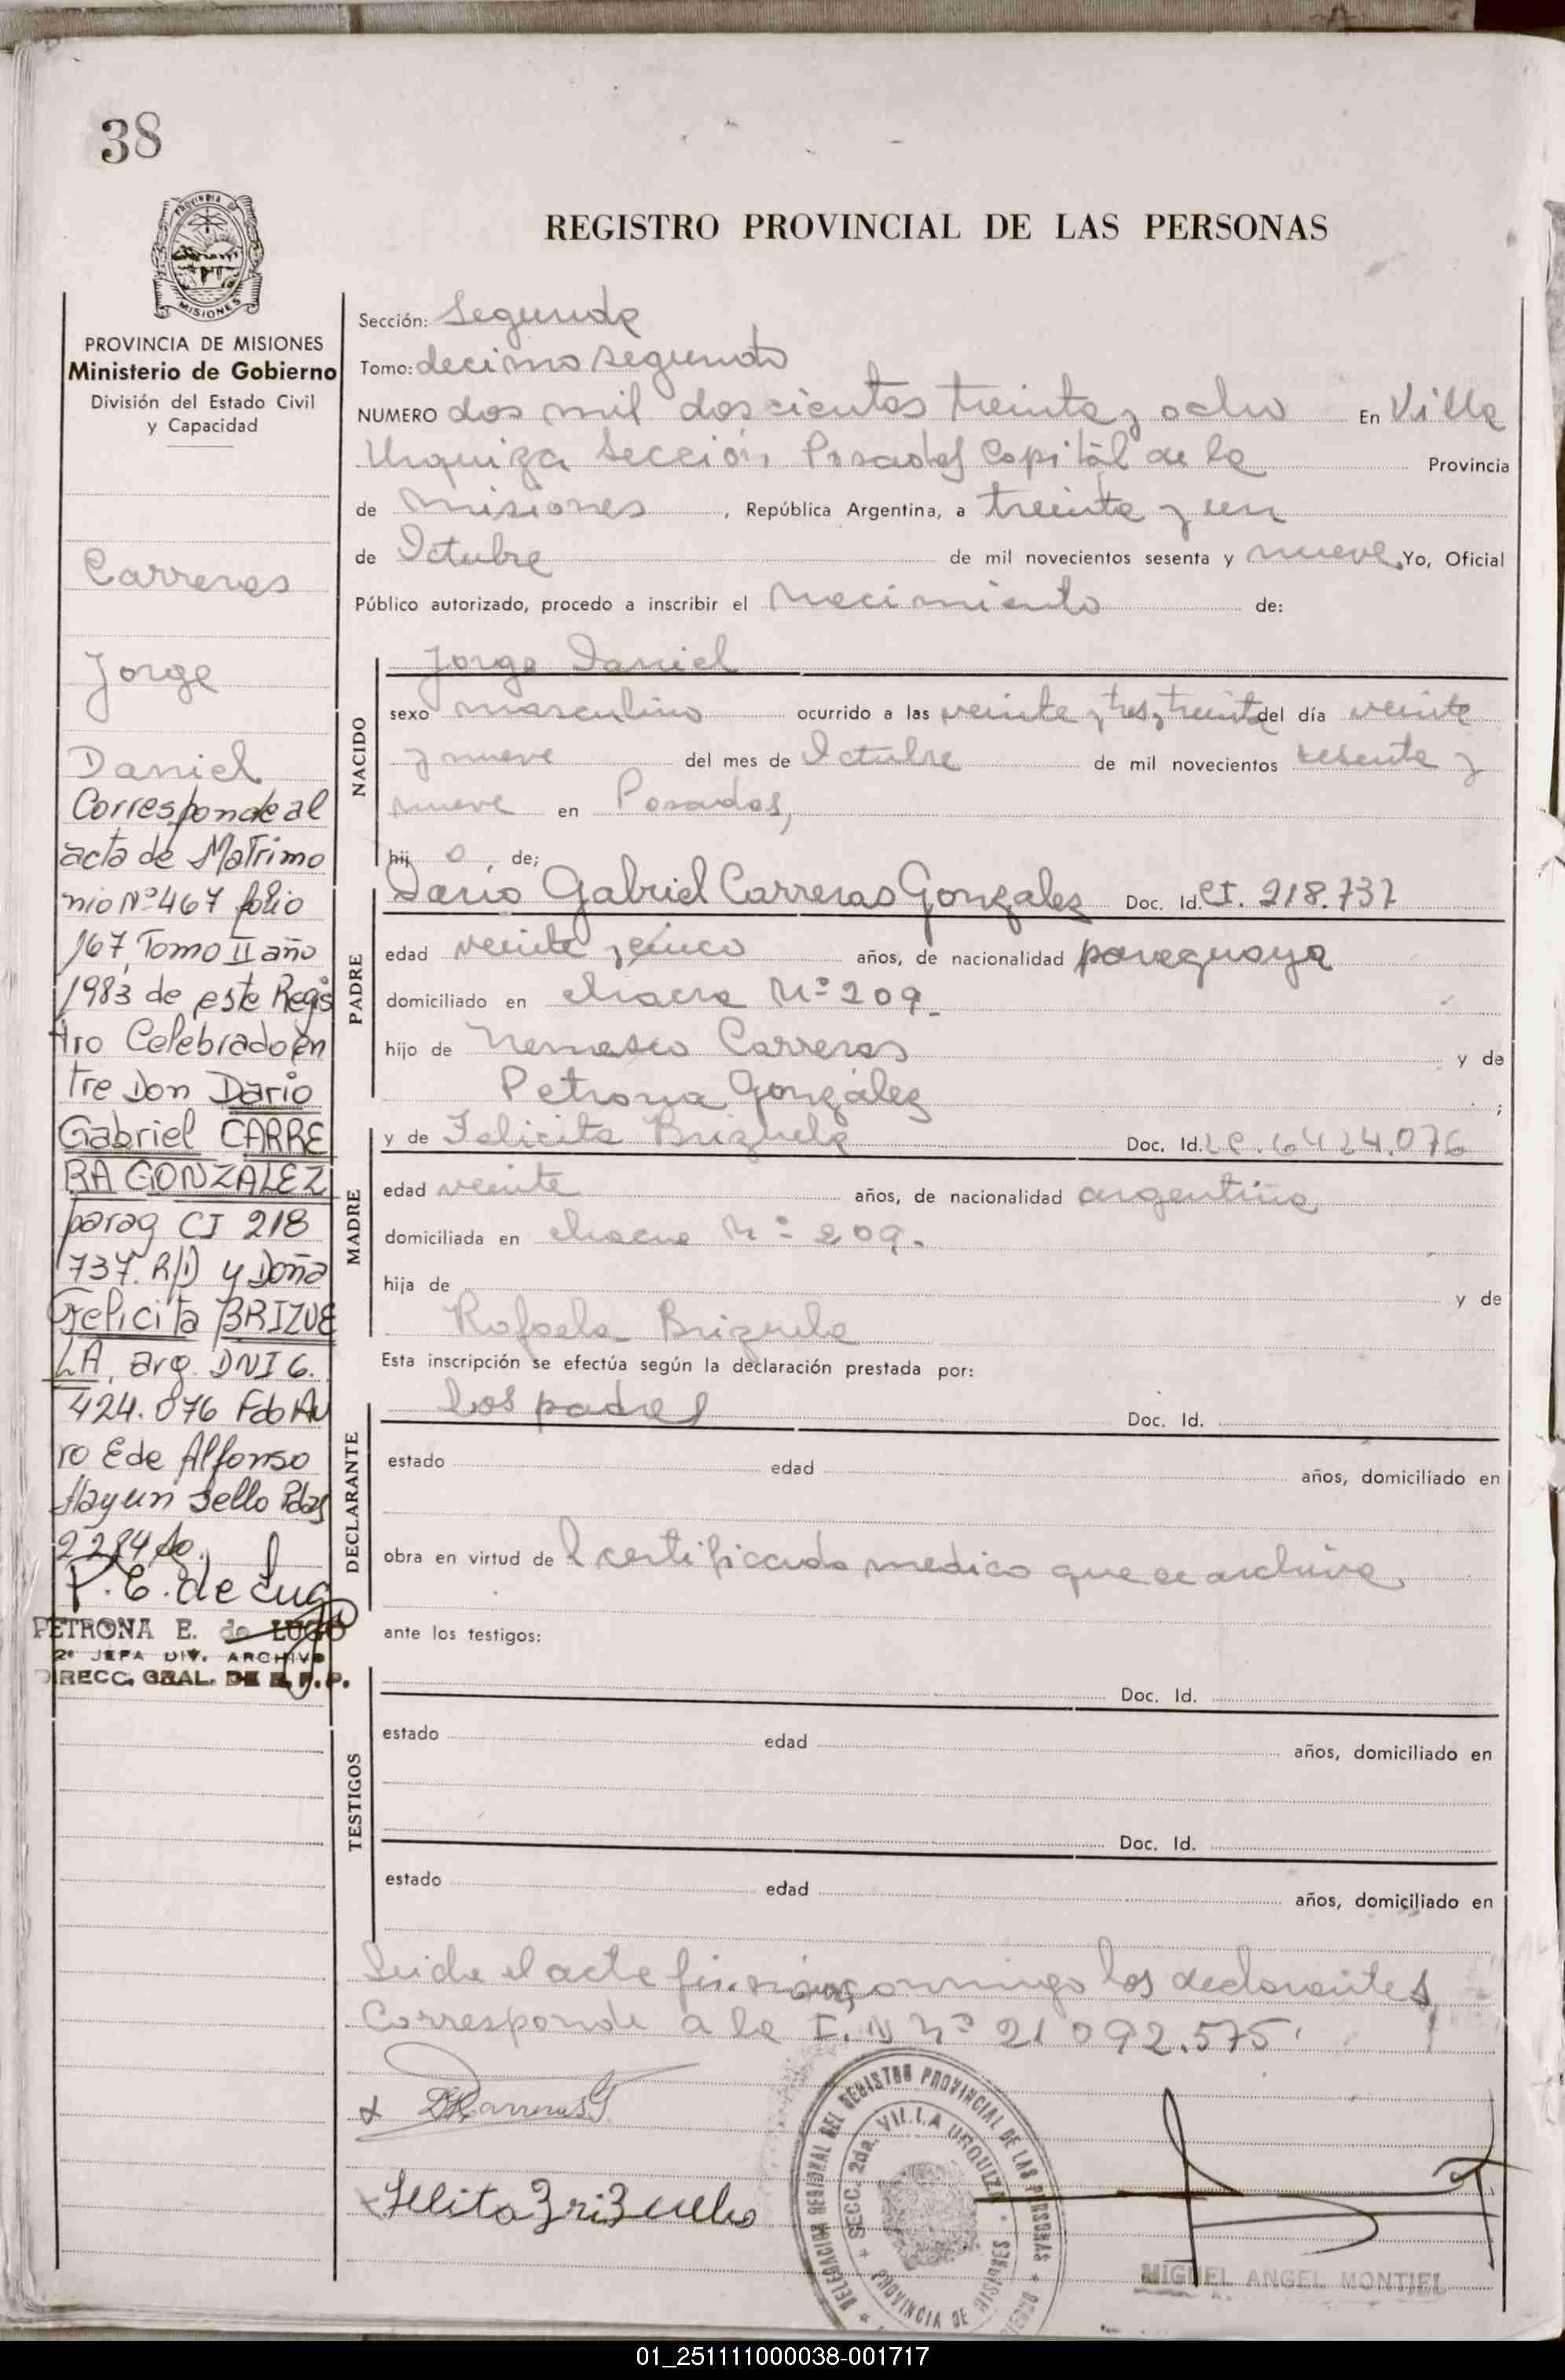 38
PROVINCIA DE
MISIONES
PROVINCIA DE MISIONES
Ministerio de Gobierno
División del Estado Civil
y Capacidad
Carreras
Jorge
Daniel
Corresponde al
acta de Matrimo
nio Nº 467 folio
167, Tomo II año
1983 de este Regis
tro Celebrado en
tre Don Dario
Gabriel CARRE
RA GONZALEZ
parag CI 218
737. R/D y Doña
Felicita BRIZUE
LA, arg. DNI 6.
424.076 Fdo Au
ro E de Alfonso
Hay un sello Pdas
P. E. de Lugo
PETRONA E. de LUGO
2º JEFA DIV. ARCHIVO
DIRECC. GRAL. DE R. P. P.
REGISTRO PROVINCIAL DE LAS PERSONAS
Sección: Segunda
Tomo: decimo segundo
NUMERO dos mil doscientos treinta y ocho En Villa
Urquiza Sección, Posadas Capital de la Provincia
de Misiones, República Argentina, a treinta y un
de Octubre de mil novecientos sesenta y nueve, Yo, Oficial
Público autorizado, procedo a inscribir el Nacimiento de:
NACIDO
Jorge Daniel
sexo masculino ocurrido a las veinte y tres, treinta del día veinte
y nueve del mes de Octubre de mil novecientos sesenta y
nueve en Posadas,
hij o, de;
PADRE
Dario Gabriel Carreras Gonzalez Doc. Id. CI. 218.737
edad veinte y cinco años, de nacionalidad paraguaya
domiciliado en chacra Nº 209.
hijo de Nemesio Carreras y de
Petrona González ;
MADRE
y de Felicita Brizuela Doc. Id. LC. 6424.076
edad veinte años, de nacionalidad argentina
domiciliada en chacra Nº 209.
hija de y de
Rafaela Brizuela
Esta inscripción se efectúa según la declaración prestada por:
DECLARANTE
Los padres Doc. Id.
estado edad años, domiciliado en
obra en virtud de l certificado medico que se archiva.
ante los testigos:
TESTIGOS
Doc. Id.
estado edad años, domiciliado en
Doc. Id.
estado edad años, domiciliado en
Leida el acta firman conmigo los declarantes,
Corresponde a la I. N Nº 21 092.575.
x DGCarrerasG
Felicita Brizuela
DELEGACION REGIONAL DEL REGISTRO PROVINCIAL DE LAS PERSONAS
SECC. 2da. VILLA URQUIZA
PROVINCIA DE MISIONES
MIGUEL ANGEL MONTIEL
01_251111000038-001717